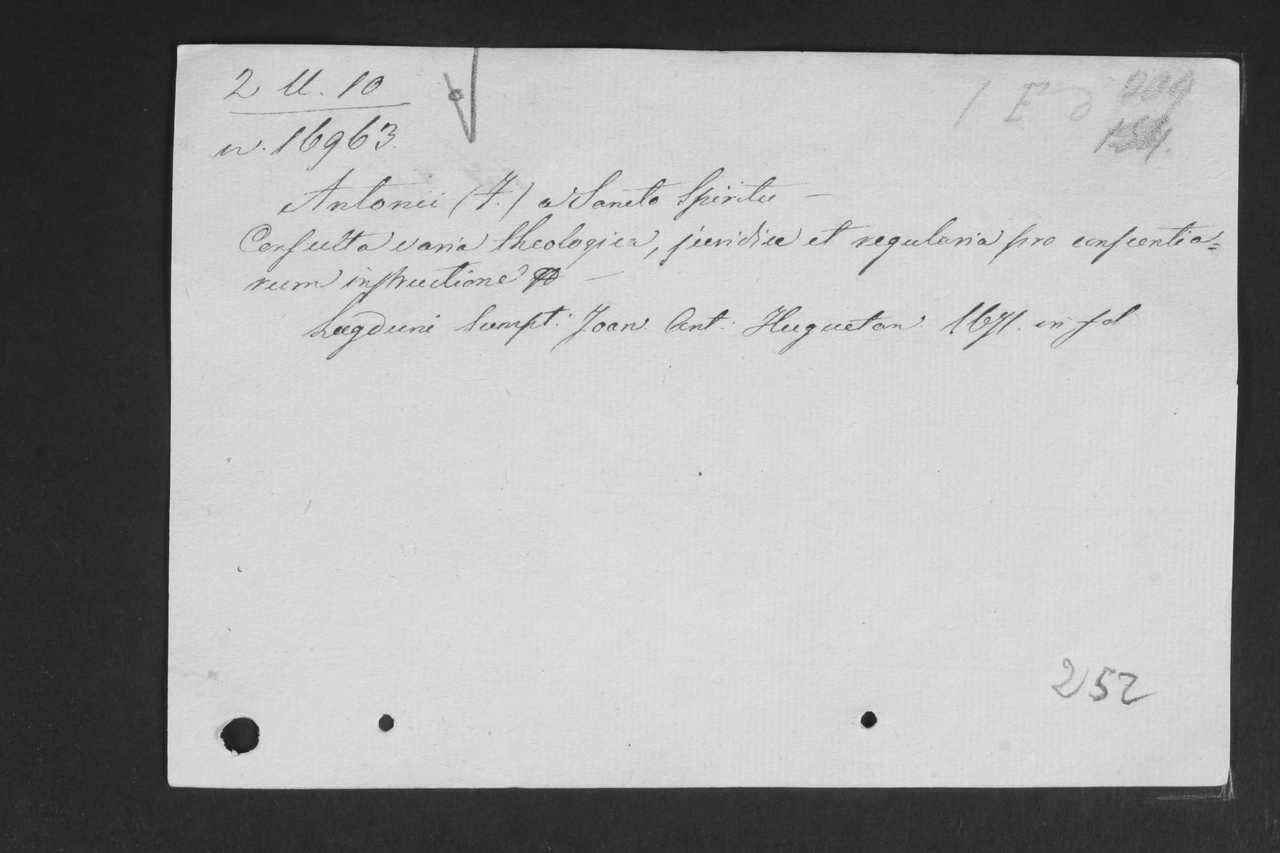 2 U. 10
n. 16963.
Antonii (F.) a Sancto Spiritu —
Consulta varia theologica, juridica et regularia pro conscientia=
rum instructione —
Lugduni sumpt. Joan. Ant. Huguetan 1671. in fol
252